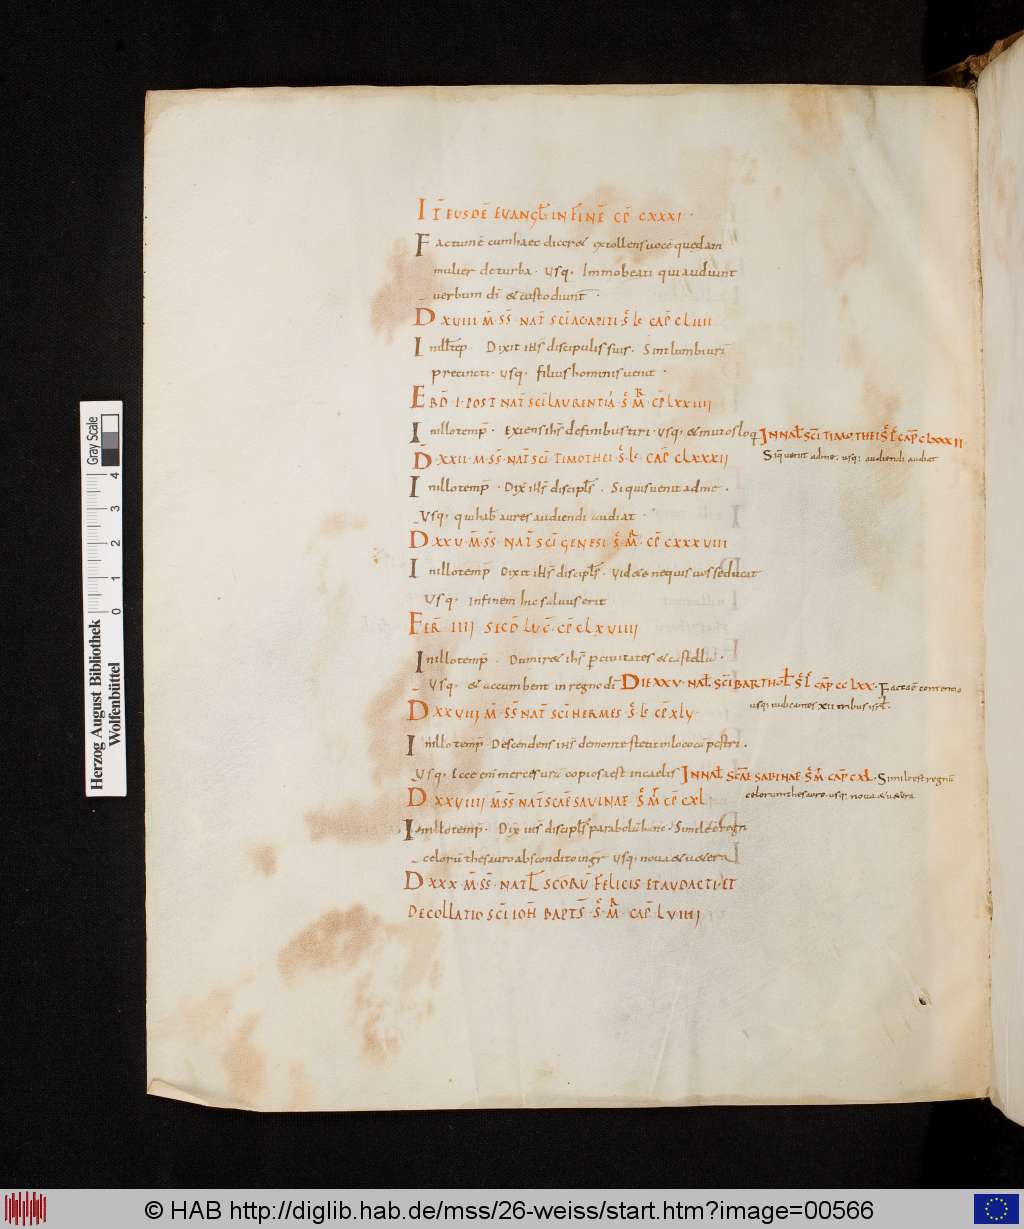 IT̄ EUSDĒ EVANGL̄ IN FĪNĒ CP̄ CXXXI ·
Factum ē cum haec dicer& extollens uocē quedam
mulier de turba · usq· Immo beati qui audiunt
uerbum dī & custodiunt ·
D XVIII M̄ · SS̄ · NAT̄ SC̄I AGAPITI S̄ LC CAP̄ CLIIII
In ill̄ temp̄ · Dixit ih̄s discipulis suis · Sint lumbi uri
precincti · usq· filius hominis uenit ·
EBD̄ · I · POST NAT̄ SC̄I LAURENTII S̄ M̄R CP̄ LXXIIII
In illo temp̄ · Exiens ih̄s de finibus tiri · usq· & mutos loq
IN NAT̄ SC̄I TIMOTHEI S̄ L̄ CAP̄ CLXXXII
Siq̄ uenit ad me · usq· audiendi audiat
D XXII · M̄ · SS̄ · NAT̄ SC̄I TIMOTHEI · S̄ · LC · CAP̄ CLXXXII
In illo temp̄ · Dix̄ ih̄s discipl̄s · Si quis uenit ad me ·
Usq· qui hab̄ aures audiendi audiat ·
D XXV · M̄ · SS̄ · NAT̄ SC̄I GENESI · S̄ · M̄R · CP̄ CXXXVIII
In illo temp̄ Dixit ih̄s discipl̄s · Uid&e ne quis uos seducat
Usq· in finem hic saluus erit
FER̄ IIII SECD̄ LUC̄ · CP̄ CLXVIIII
In illo temp̄ · Dum ir& ih̄s p ciuitates & castella ·
Usq· & accumbent in regno dī
DIE XXV · NAT̄ SC̄I BARTHOL̄ S̄ L̄ CAP̄ CCLXX · Facta ē contentio
usq· iudicantes XII tribus isrl̄ ·
D XXVIII M̄ · SS̄ NAT̄ SC̄I HERMES · S̄ LC CP̄ XLV
In illo temp̄ · Descendens ih̄s de monte stetit in loco cāpestri ·
Usq· Ecce eni merces urā copiosa est in caelis
IN NAT̄ SC̄AE SABINAE S̄ M̄ CAP̄ CXL · Simile est regnū
celorum thesauro · usq· noua & u&era
D XXVIIII M̄ · SS̄ · NAT̄ SC̄AE SAVINAE · S̄ M̄ CP̄ CXL
In illo temp̄ · Dix ih̄s discipl̄s parabolā hanc · Simile ē regn
celorū thesauro abscondito in agr̄ usq· noua & u&era
D XXX · M̄ · SS̄ · NATL̄ SCORŪ FELICIS ET AUDACTI · ET
DECOLLATIO SC̄I IOH̄ BAPTS̄ · S̄ · M̄R · CAP̄ LVIIII
Herzog August Bibliothek
Wolfenbüttel
Gray Scale
0 1 2 3 4
© HAB http://diglib.hab.de/mss/26-weiss/start.htm?image=00566